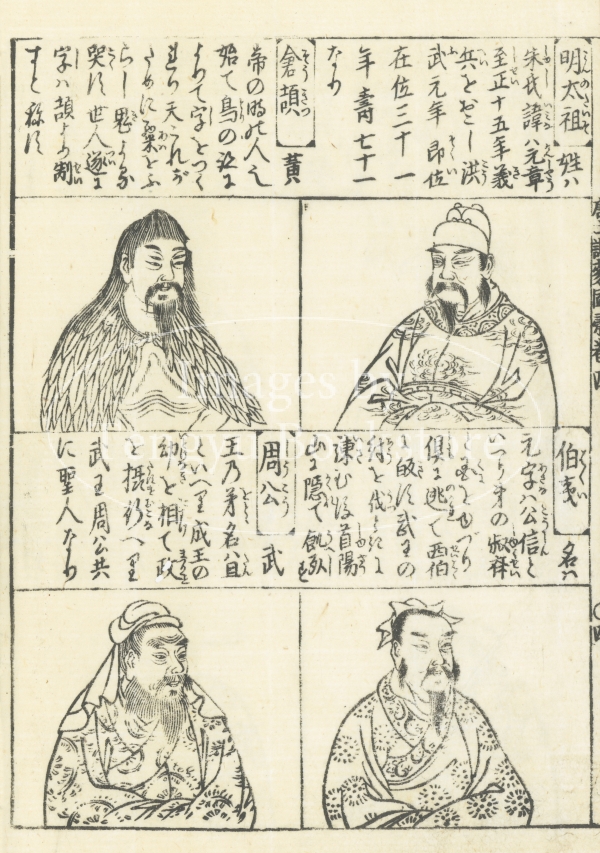 明太祖 姓ハ
朱氏諱ハ元章
至正十五年義
兵をおこし洪
武元年即位
在位三十一
年壽七十一
なり
倉頡 黃
帝の時の人也
始て鳥の迹に
よりて字をつく
れり天これが
ために粟をふ
らし鬼よる
哭す世人遂に
字ハ頡よ里制
すと称す
伯夷 名ハ
元字ハ公信と
いへり弟の叔祥
俱に逃て西伯
に皈す武王の
紂を伐を
諫む後首陽
山に隱て飢死す
周公 武
王乃弟名ハ旦
といへり成王の
幼を相て政
を摂行へり
武王周公共
に聖人なり
Images by